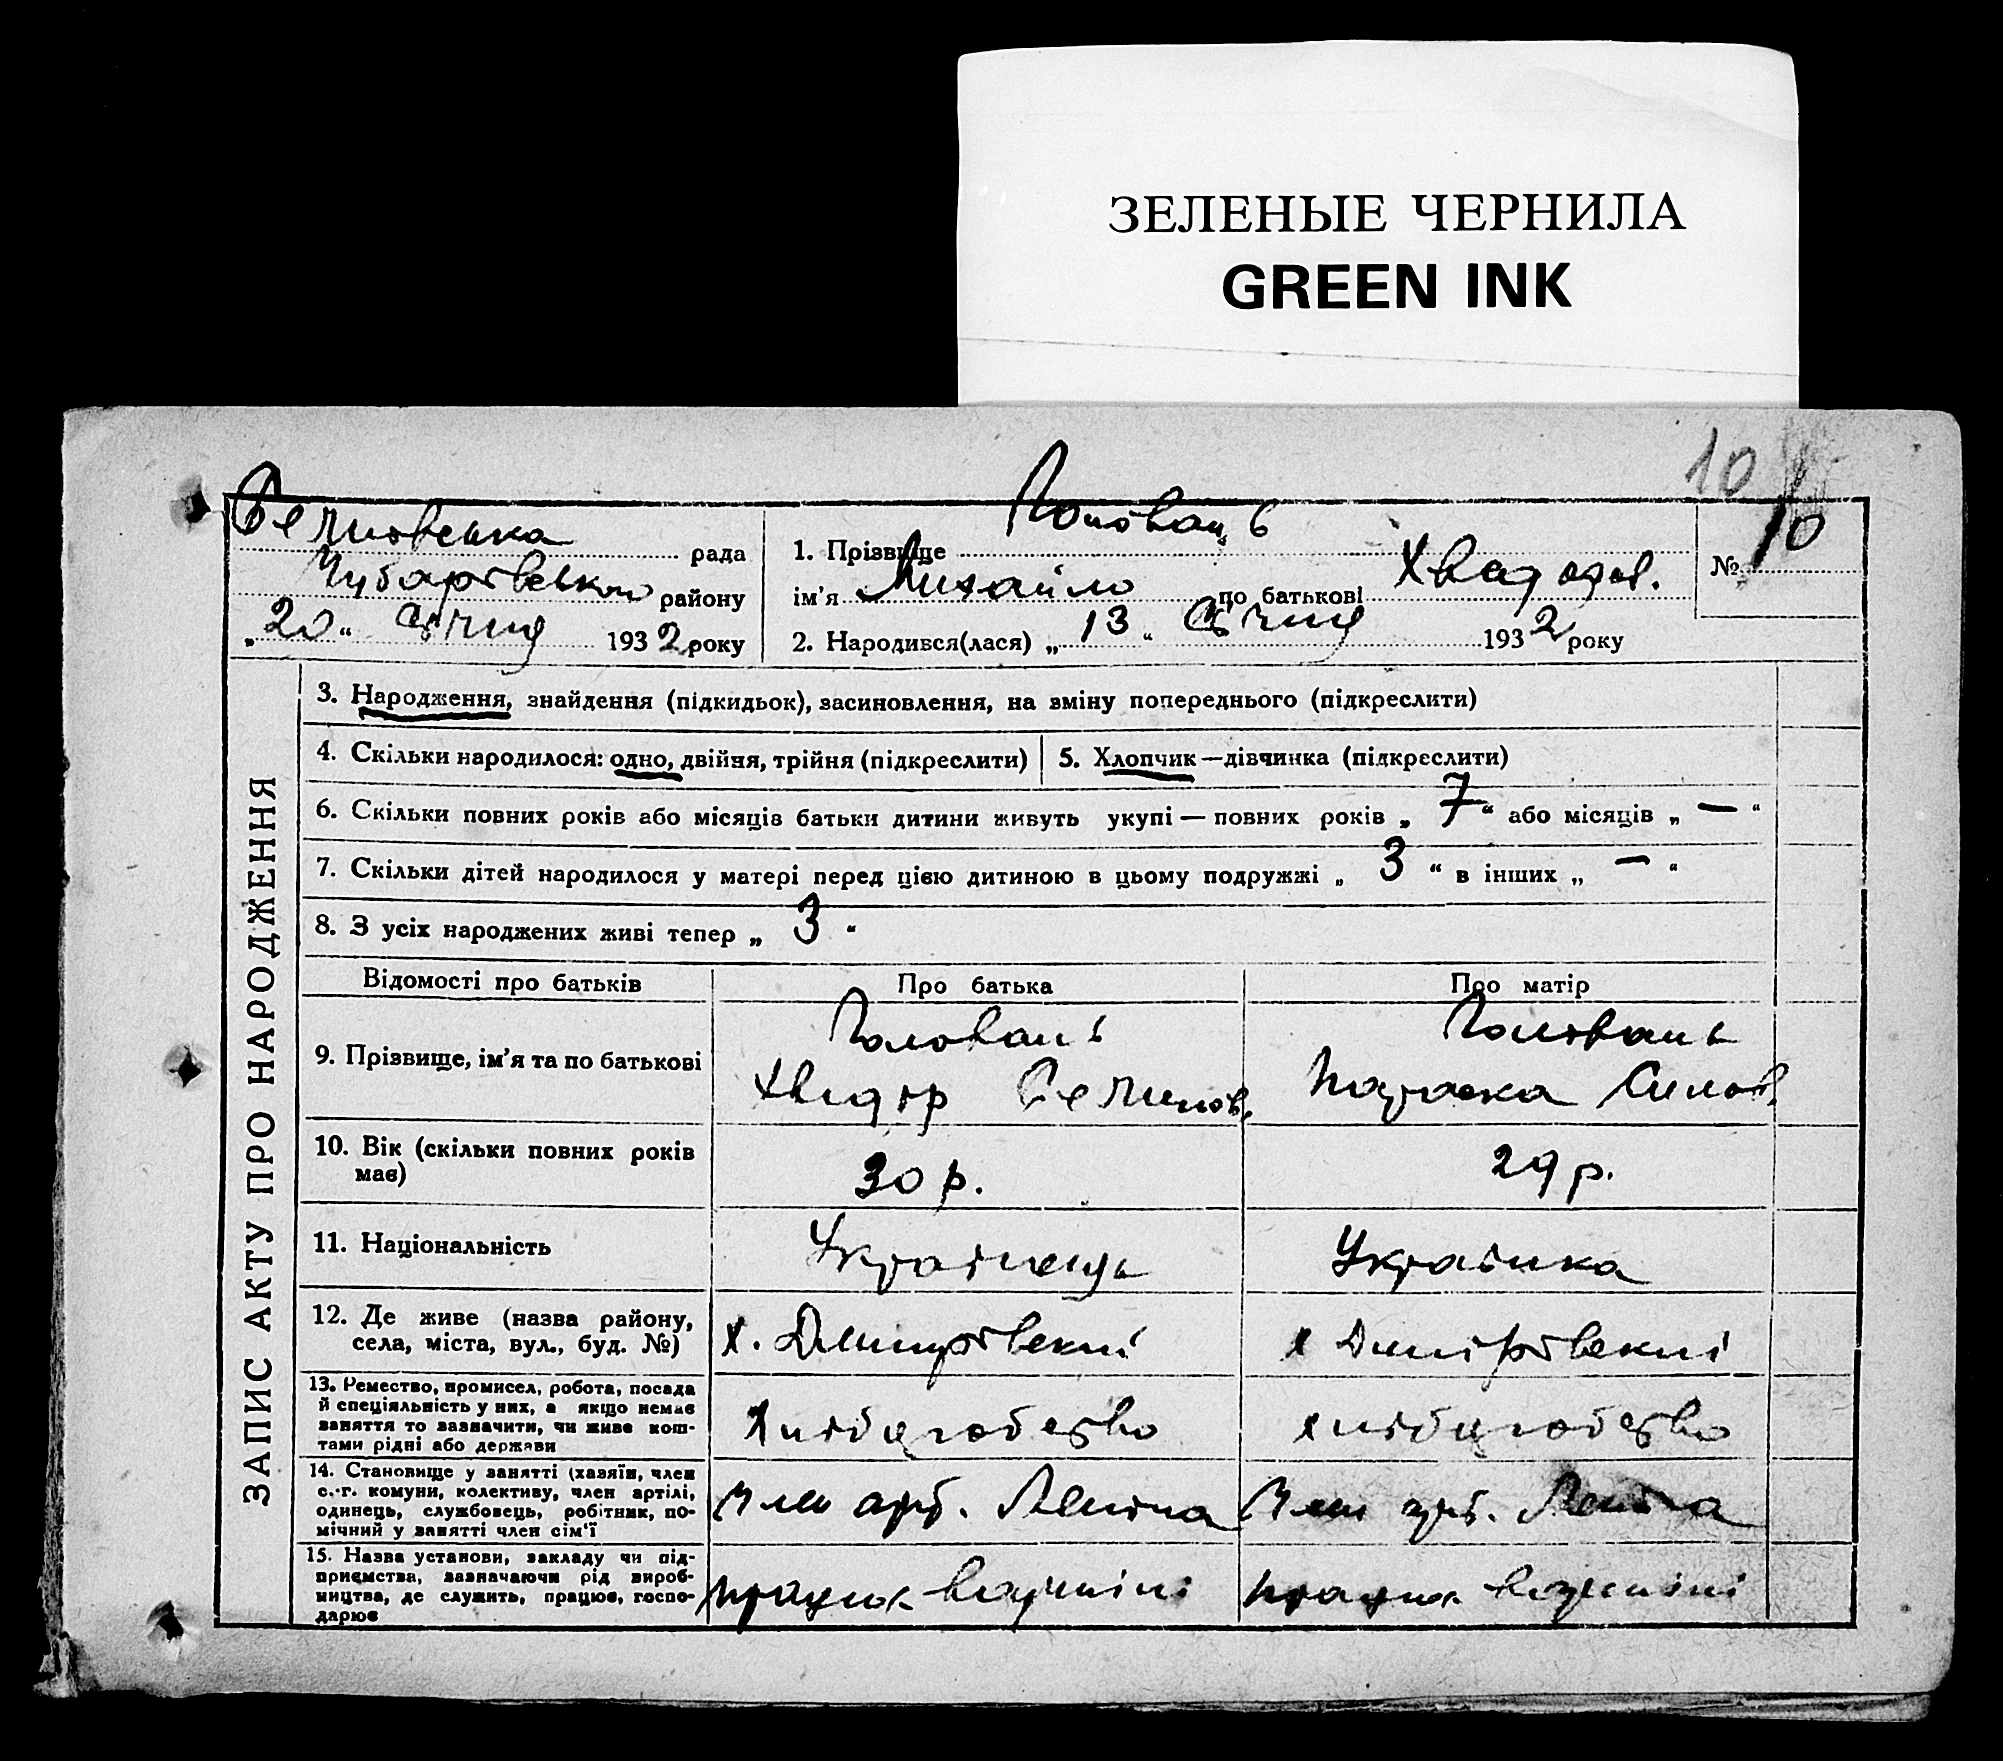 ЗЕЛЕНЫЕ ЧЕРНИЛА
GREEN INK
10
рада
Чубарівського району
„20“ Січня 1932 року
1. Прізвище Головань
ім'я Михайло по батькові Хведоров.
2. Народився(лася) „13“ Січня 1932 року
№ 10
ЗАПИС АКТУ ПРО НАРОДЖЕННЯ
3. Народження, знайдення (підкидьок), засиновлення, на зміну попереднього (підкреслити)
4. Скільки народилося: одно, двійня, трійня (підкреслити)
5. Хлопчик—дівчинка (підкреслити)
6. Скільки повних років або місяців батьки дитини живуть укупі — повних років „7“ або місяців „—“
7. Скільки дітей народилося у матері перед цією дитиною в цьому подружжі „3“ в інших „—“
8. З усіх народжених живі тепер „3“
Відомості про батьків
Про батька
Про матір
9. Прізвище, ім'я та по батькові
Головань
Хведір
Головань
Параска Силов.
10. Вік (скільки повних років
має)
30 р.
29 р.
11. Національність
Українець
Українка
12. Де живе (назва району,
села, міста, вул., буд. №)
х. Дмитрівський
х Дмитрівський
13. Ремество, промисел, робота, посада
й спеціяльність у них, а якщо немає
заняття то зазначити, чи живе кош-
тами рідні або держави
Хліборобство
хліборобство
14. Становище у занятті (хазяїн, член
с.-г. комуни, колективу, член артілі,
одинець, службовець, робітник, по-
мічний у занятті член сім'ї
Член арт. Леніна
Член арт. Леніна
15. Назва установи, закладу чи під-
приємства, зазначаючи рід вироб-
ництва, де служить, працює, госпо-
дарює
працює в артілі
працює в артілі